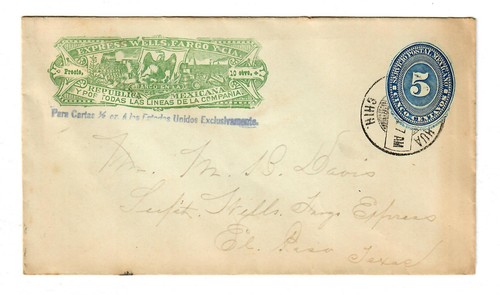 EXPRESS WELLS, FARGO Y CIA.
Precio, 10 ctvs.
REPUBLICA MEXICANA
Y POR TODAS LAS LINEAS DE LA COMPAÑIA
Para Cartas ½ oz. á los Estados Unidos Exclusivamente.
SERVICIO POSTAL MEXICANO
5
CINCO CENTAVOS
HUA
7 PM
CHIH.
Mr. M. B. Davis
Supt. Wells Fargo Express
El Paso
Texas